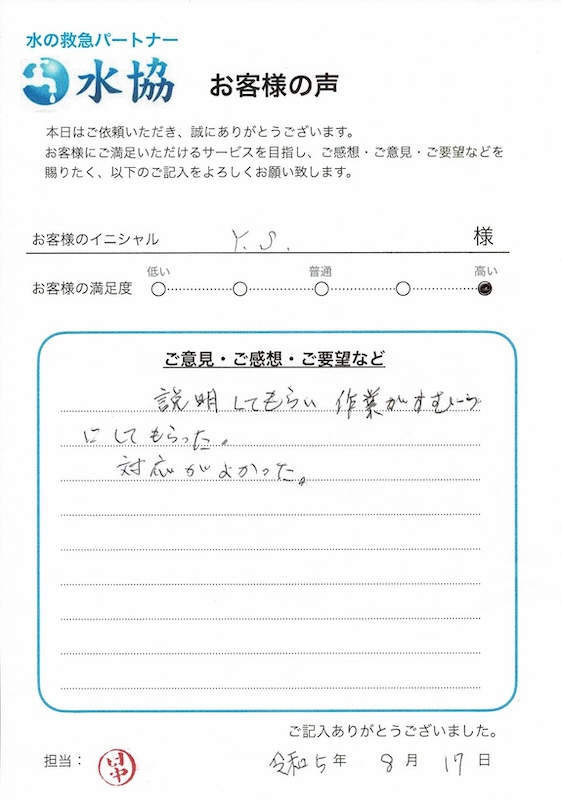 水の救急パートナー
水協 お客様の声
本日はご依頼いただき、誠にありがとうございます。
お客様にご満足いただけるサービスを目指し、ご感想・ご意見・ご要望などを
賜りたく、以下のご記入をよろしくお願い致します。
お客様のイニシャル Y.S. 様
低い 普通 高い
お客様の満足度
ご意見・ご感想・ご要望など
説明してもらい 作業が
にしてもらった。
対応がよかった。
ご記入ありがとうございました。
担当： 令和5年 8月 17日